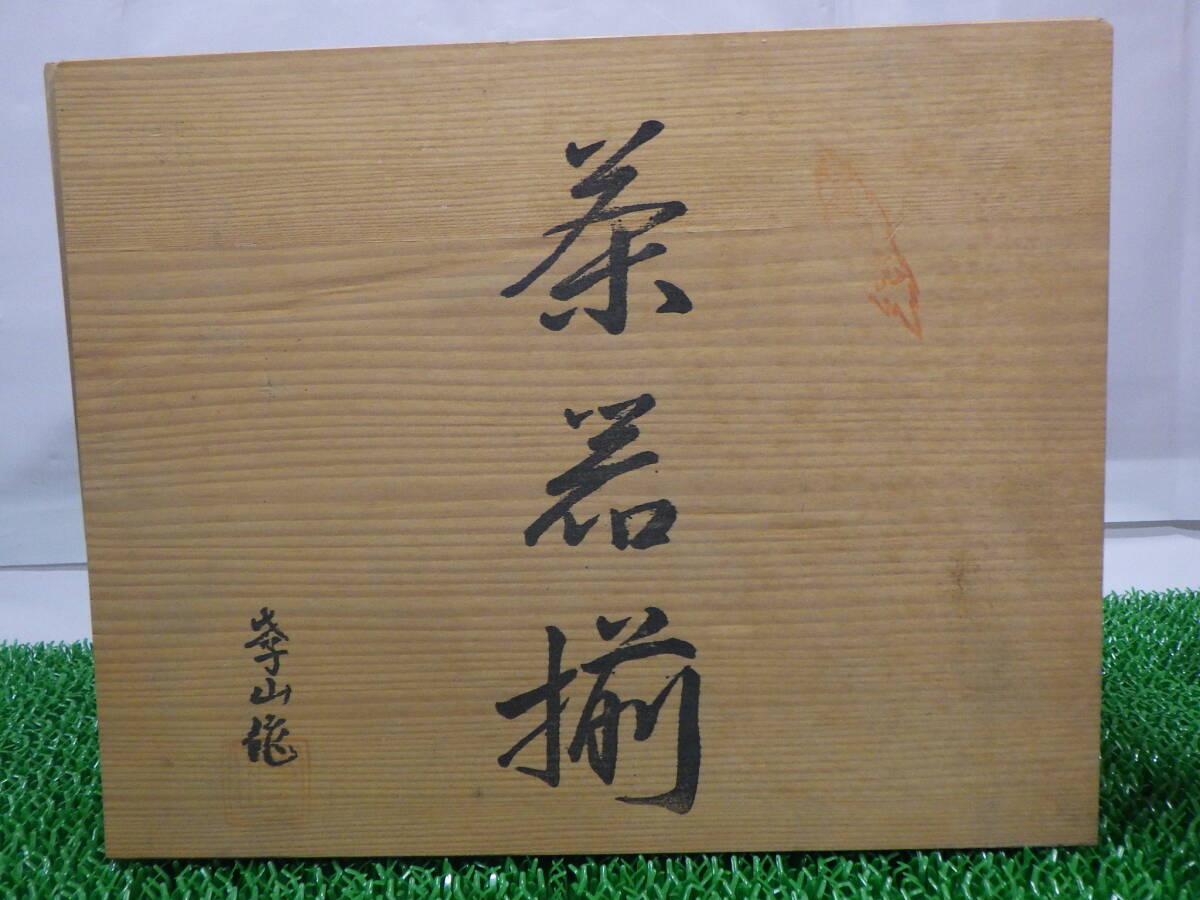 茶器揃
峯山作